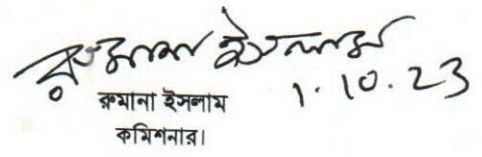 রুমানা ইসলাম
1.10.23
রুমানা ইসলাম
কমিশনার।